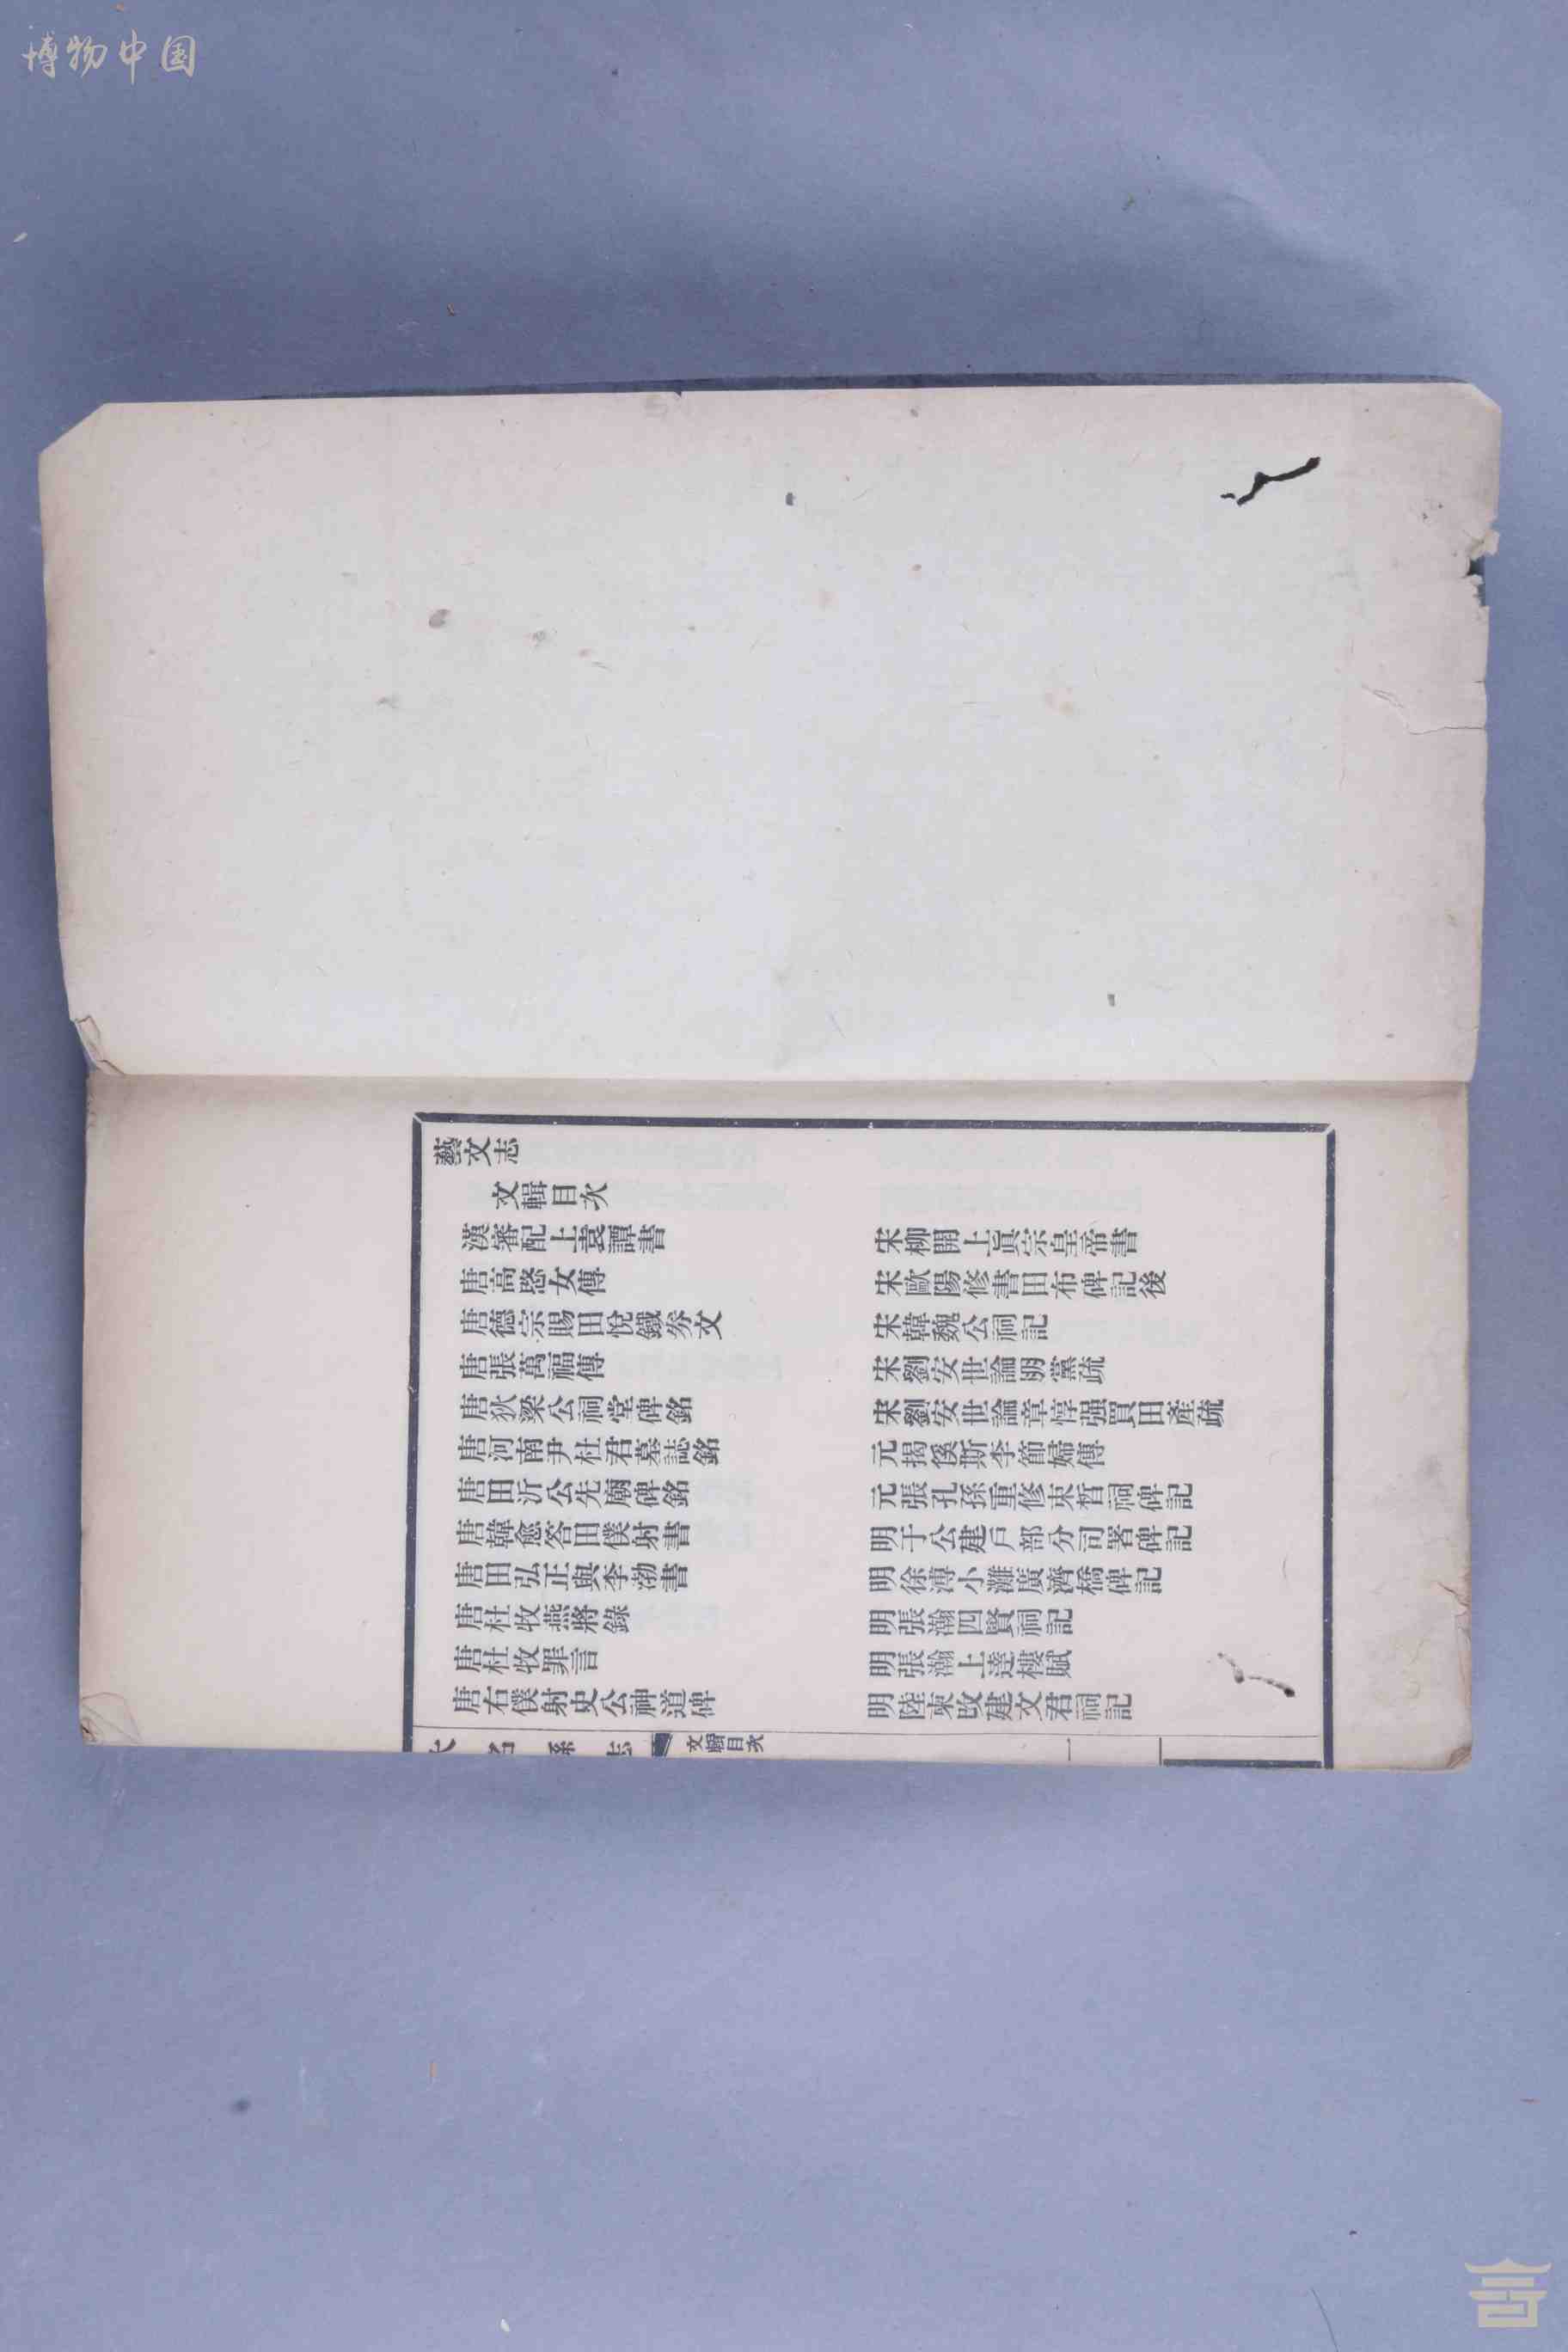 博物中国
藝文志
文輯目次
漢審配上袁譚書
唐高愍女傳
唐德宗賜田悅鐵券文
唐張萬福傳
唐狄梁公祠堂碑銘
唐河南尹杜君墓誌銘
唐田沂公先廟碑銘
唐韓愈答田僕射書
唐田弘正與李渤書
唐杜牧燕將錄
唐杜牧罪言
唐右僕射史公神道碑
宋柳開上眞宗皇帝書
宋歐陽修書田布碑記後
宋韓魏公祠記
宋劉安世論朋黨疏
宋劉安世論章惇强買田產疏
元揭傒斯李節婦傳
元張孔孫重修束晳祠碑記
明于公建戶部分司署碑記
明徐溥小灘廣濟橋碑記
明張瀚四賢祠記
明張瀚上達樓賦
明陸柬改建文君祠記
文輯目次
一